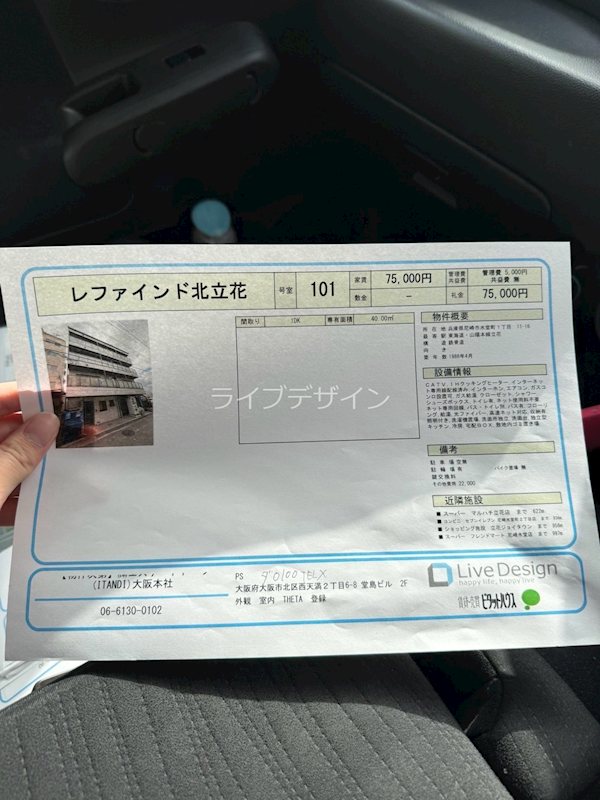 レファインド北立花
号室
101
家賃
75,000円
管理費
共益費
管理費 5,000円
共益費 無
敷金
-
礼金
75,000円
間取り
1DK
専有面積
40.00㎡
ライブデザイン
物件概要
所 在 地 兵庫県尼崎市水堂町1丁目
最 寄 駅 東海道・山陽本線立花
構 造 鉄骨造
向 き
築 年 数 1988年4月
設備情報
CATV、IHクッキングヒーター、インターネッ
ト専用線配線済み、インターホン、エアコン、ガスコ
ンロ設置可、ガス給湯、クローゼット、シャワー、
シューズボックス、トイレ有、ネット使用料不要、
ネット専用回線、バス・トイレ別、バス有、フローリ
ング、給湯、光ファイバー、高速ネット対応、収納有、
照明付き、洗濯機置場、洗面所独立、洗面台、独立型
キッチン、冷房、宅配BOX、敷地内ゴミ置き場、
備考
駐 車 場 空無
駐 輪 場 有
バイク置場 無
鍵交換料
その他費用 22,000
近隣施設
■ スーパー マルハチ立花店 まで 622m
■ コンビニ セブンイレブン 尼崎水堂町2丁目店 まで
■ ショッピング施設 立花ジョイタウン まで 856m
■ スーパー フレンドマート 尼崎水堂店 まで 987m
(ITANDI)大阪本社
06-6130-0102
PS
大阪府大阪市北区西天満2丁目6-8 堂島ビル 2F
外観 室内 THETA 登録
Live Design
happy life, happy live
賃貸・売買 ピタットハウス